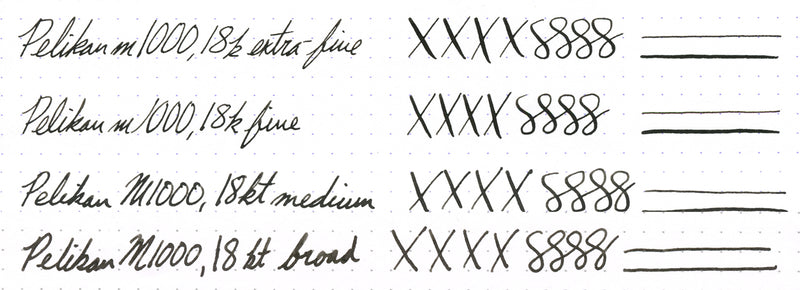 Pelikan m1000, 18k extra-fine XXXX 8888
Pelikan m1000, 18k fine XXXX 8888
Pelikan M1000, 18kt medium XXXX 8888
Pelikan M1000, 18 kt broad XXXX 8888